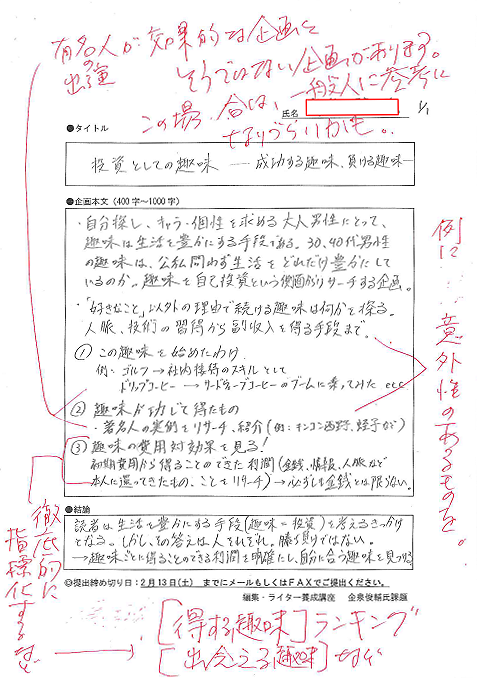 有名人が効果的な企画と
の出演
そうではない企画があります。
一般人に参考に
この場合は、
なりづらいかも。
氏名
1/1
●タイトル
投資としての趣味 ── 成功する趣味、負ける趣味 ─
●企画本文（400字～1000字）
・自分探し、キャラ・個性を求める大人男性にとって、
趣味は生活を豊かにする手段である。30、40代男性
の趣味は、公私問わず生活をどれだけ豊かにして
いるのか。趣味を自己投資という側面からリサーチする企画。
・「好きなこと」以外の理由で続ける趣味は何かを探る。
人脈、技術の習得から副収入を得る手段まで。
① この趣味を始めたわけ
例：ゴルフ→社内接待のスキルとして
ドリップコーヒー → サードウェーブコーヒーのブームに乗ってみた etc
② 趣味が功じて得たもの
・著名人の実例をリサーチ、紹介（例：キンコン西野、蛭子など）
③ 趣味の費用対効果を見る！
初期費用から得ることのできた利潤（金銭、情報、人脈など
本人に還ってきたもの、ことをリサーチ）→必ずしも金銭とは限らない。
例に…意外性のあるものを。
徹底的に
指標化するなど
●結論
読者は生活を豊かにする手段（趣味＝投資）を考えるきっかけ
となる。しかし、その答えは人それぞれ。勝ち負けではない。
→趣味ごとに得ることのできる利潤を明確にし、自分に合う趣味を見つける。
◎提出締め切り日：2月13日（土）　までにメールもしくはFAXでご提出ください。
編集・ライター養成講座　金泉俊輔氏課題
[得する趣味]ランキング
[出会える趣味]など